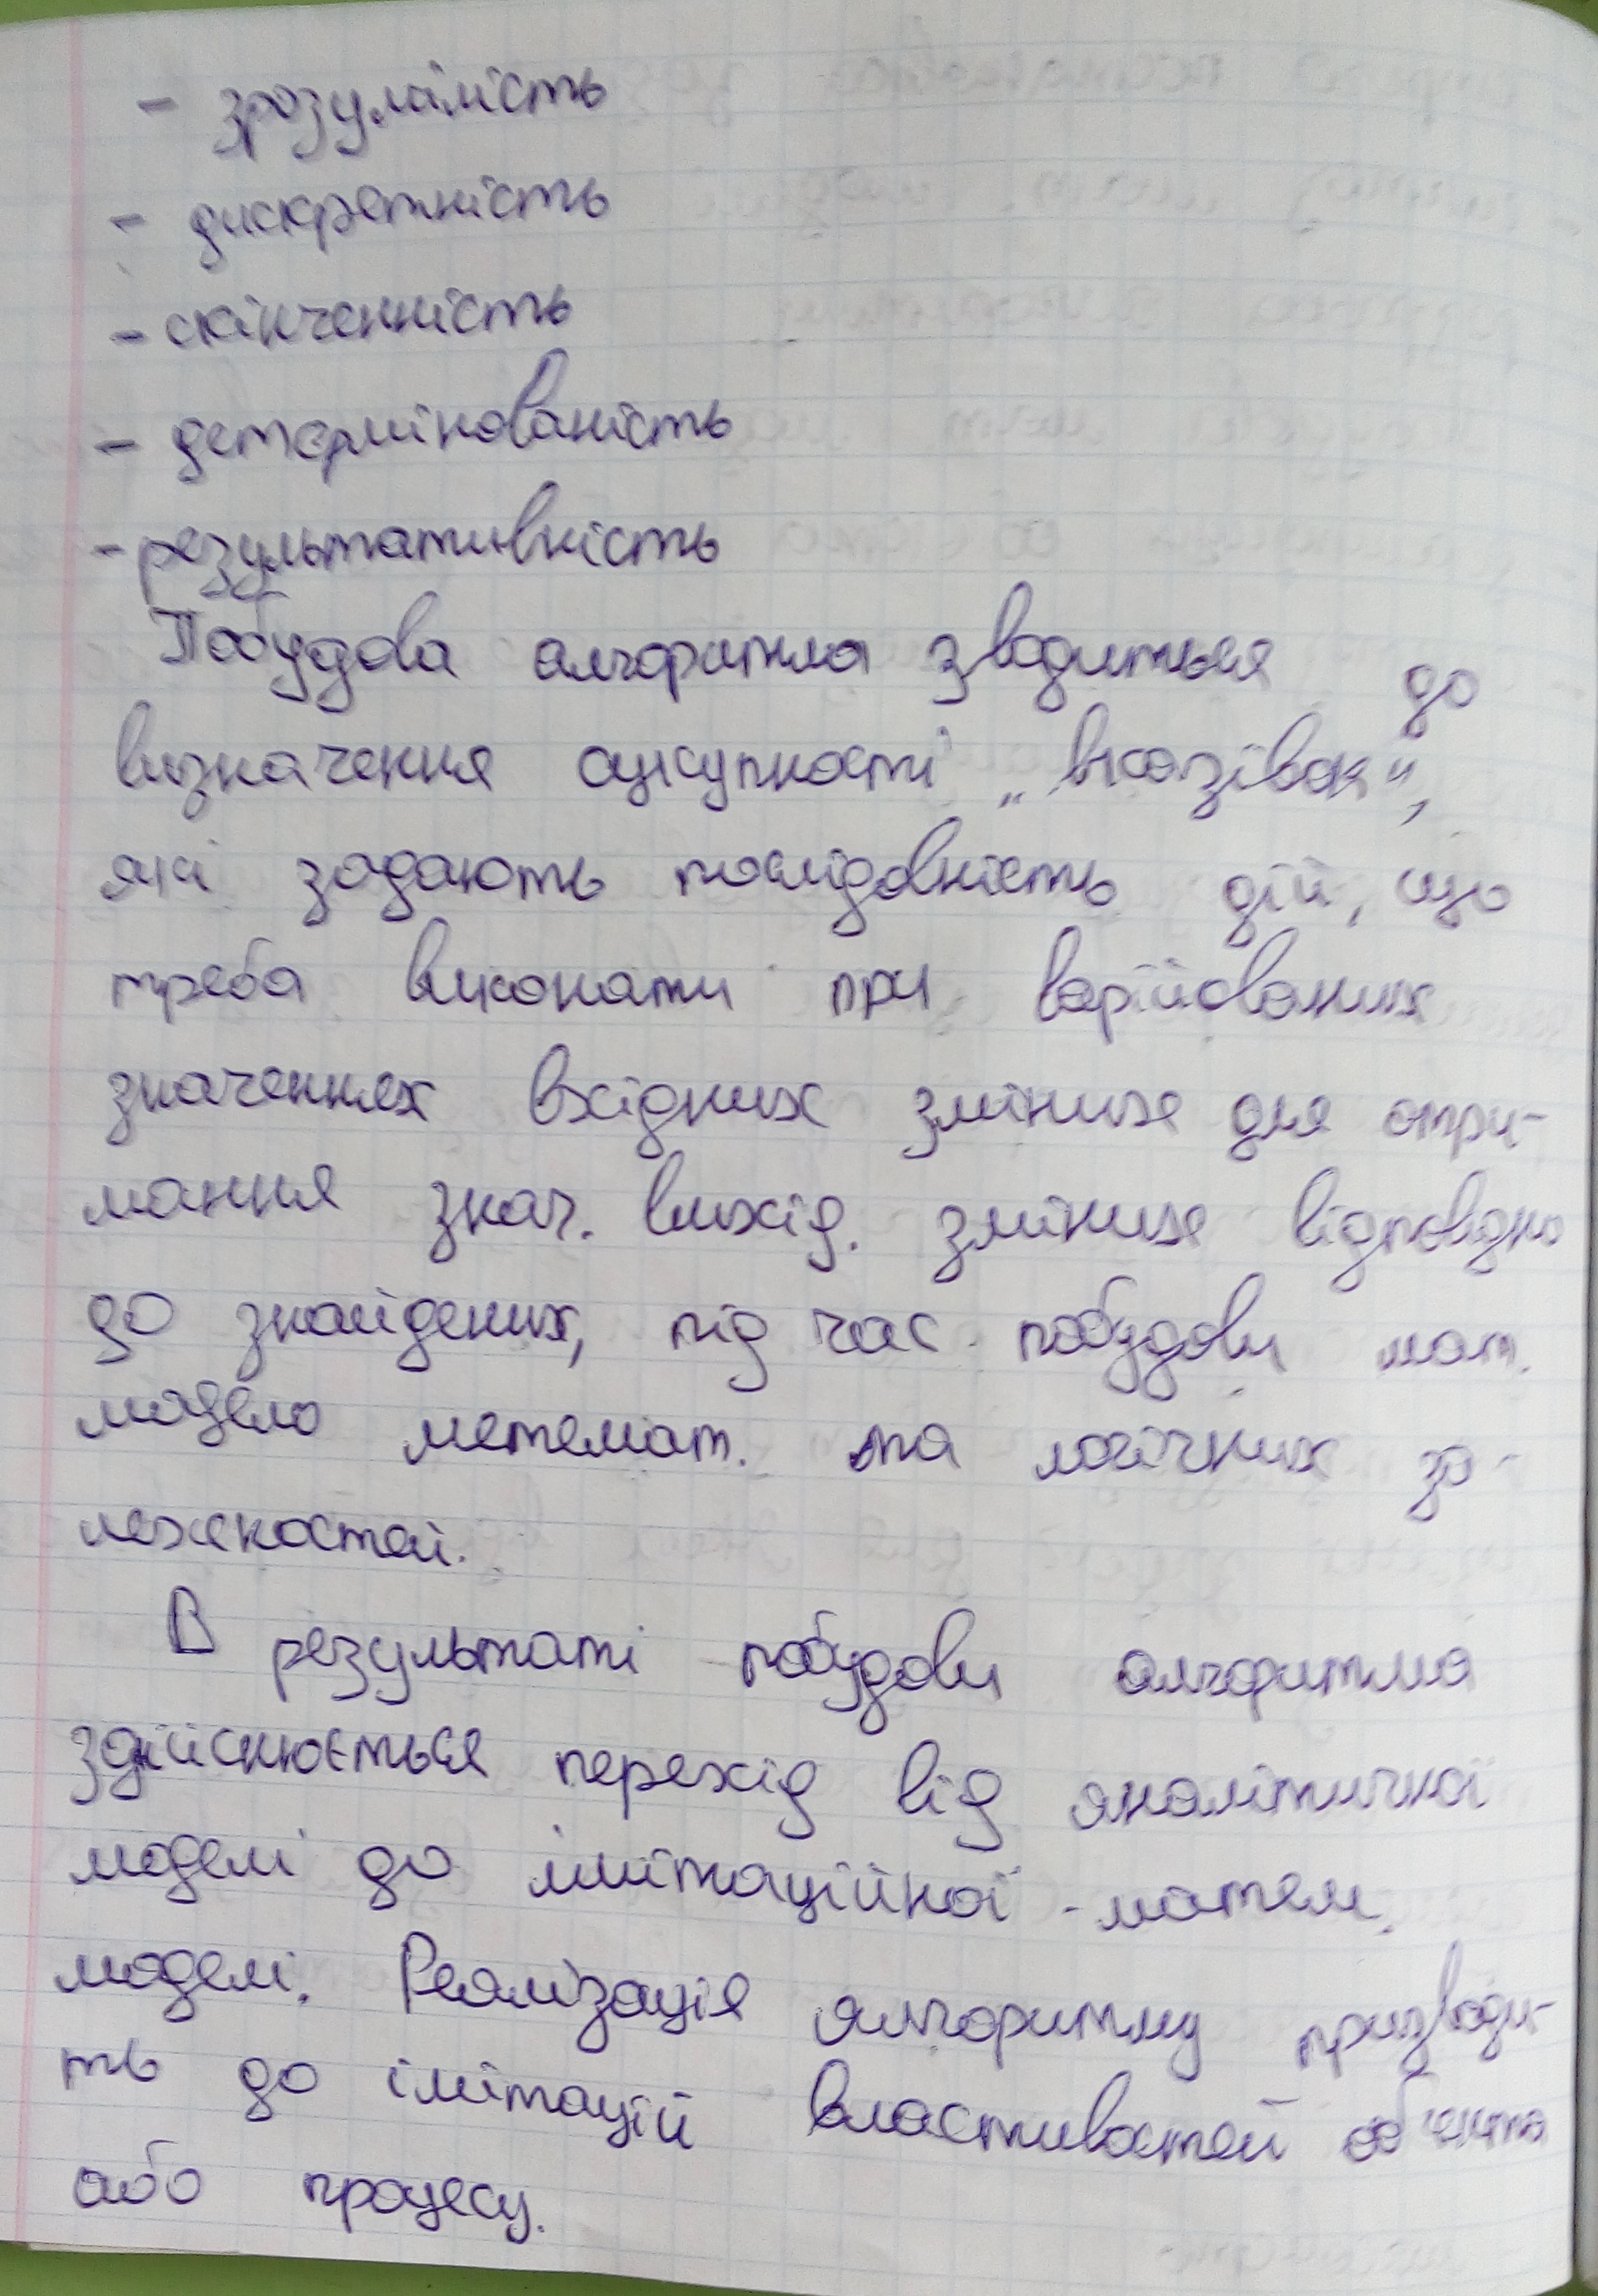 - зрозумілість
- дискретність
- скінченність
- детермінованість
- результативність
Побудова алгоритма зводиться до
визначення сукупності „вказівок",
які задають послідовність дій, що
треба виконати при варійованих
значеннях вхідних змінних для отри-
мання знач. вихід. змінних відповідно
до знайдених, під час побудови мат.
модело метемат. та логічних за-
лежностей.
В результаті побудови алгоритма
здійснюється перехід від аналітичної
моделі до імітаційної - матем.
моделі. Реалізація алгоритму призводи-
ть до імітацій властивостей об'єкта
або процесу.